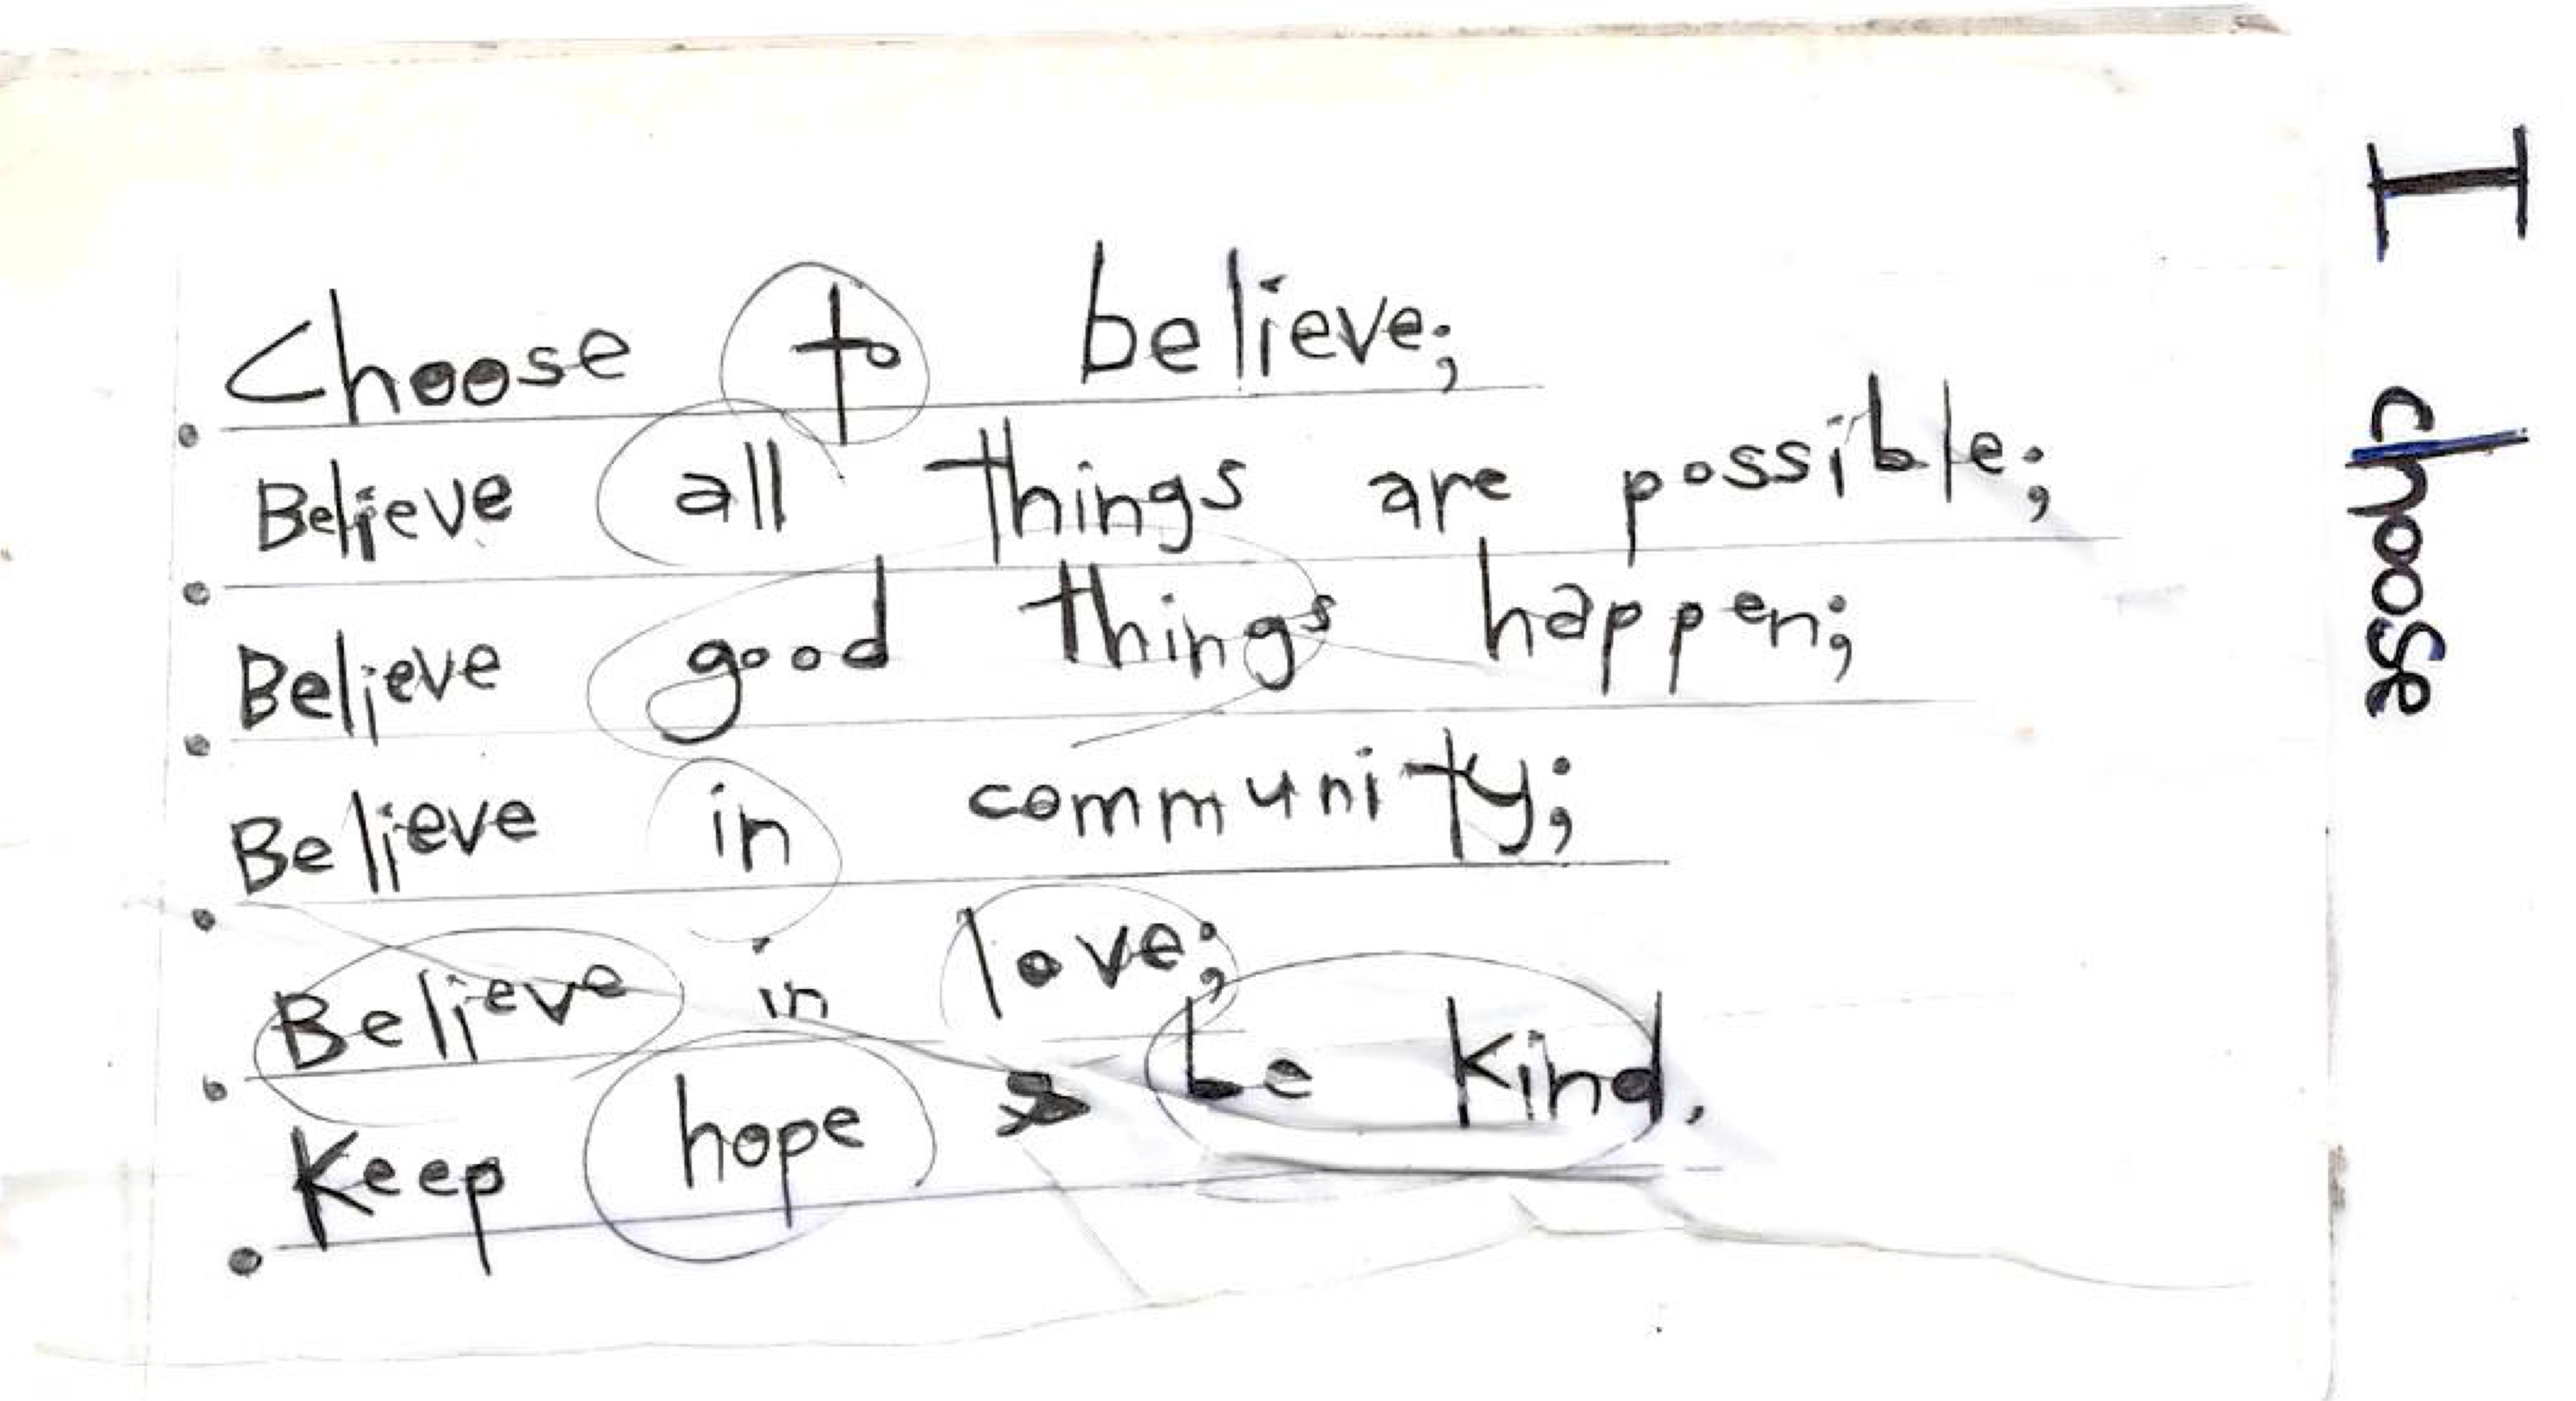 Choose to believe;
Believe all things are possible;
Believe good things happen;
Believe in community;
Believe in love;
Keep hope & be kind.
I choose